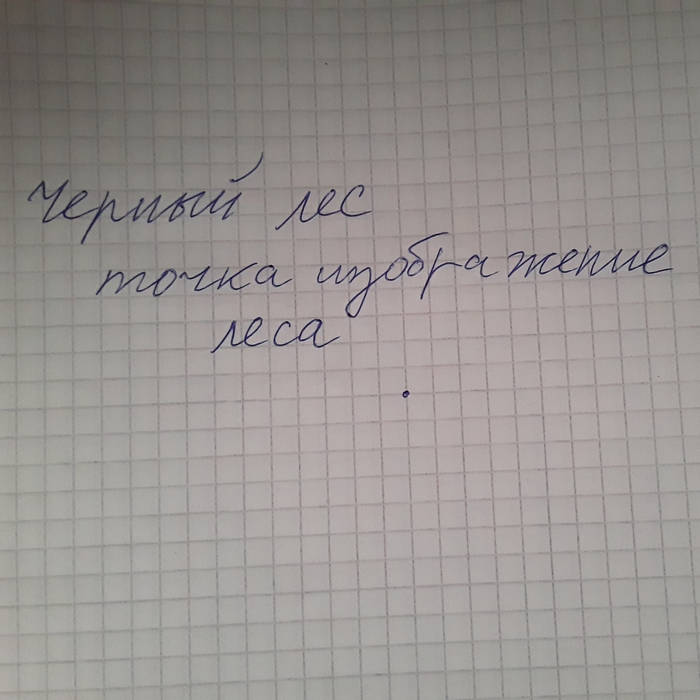 Черный лес
точка изображение
леса
.